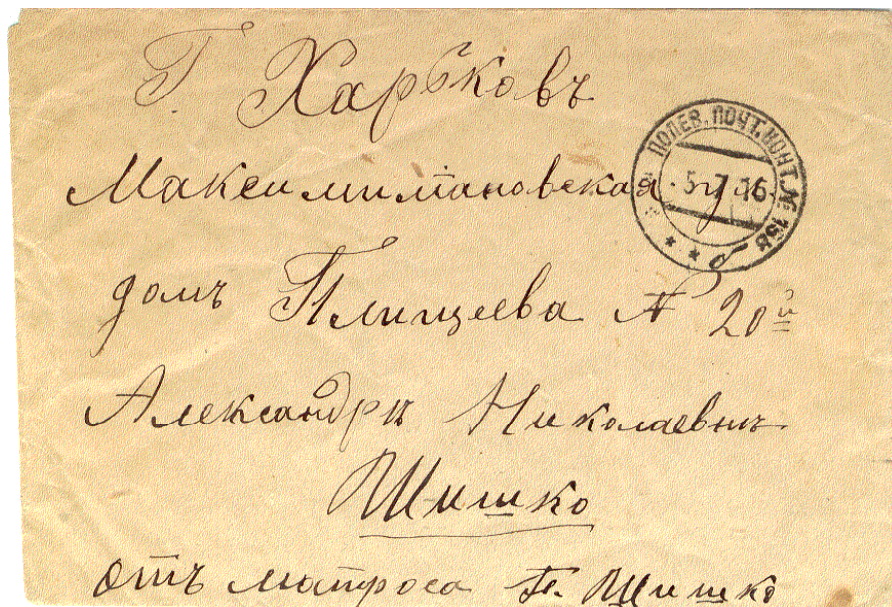 Г. Харьковъ
ПОЛЕВ. ПОЧТ. КОНТ. № 168
5 7 16
б
Максимилiановская ул.
домъ Плищеева № 20й
Александрѣ Николаевнѣ
Шишко
отъ матроса П. Шишко